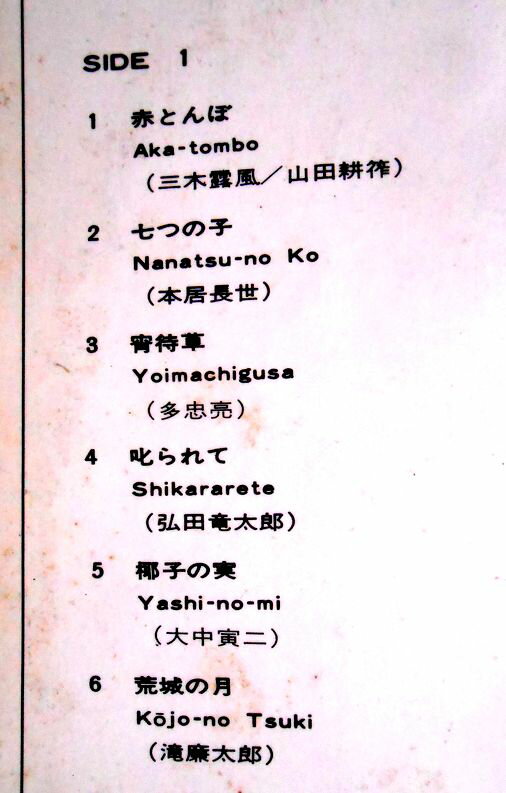 SIDE 1
1 赤とんぼ
Aka-tombo
（三木露風／山田耕筰）
2 七つの子
Nanatsu-no Ko
（本居長世）
3 宵待草
Yoimachigusa
（多忠亮）
4 叱られて
Shikararete
（弘田竜太郎）
5 椰子の実
Yashi-no-mi
（大中寅二）
6 荒城の月
Kōjo-no Tsuki
（滝廉太郎）